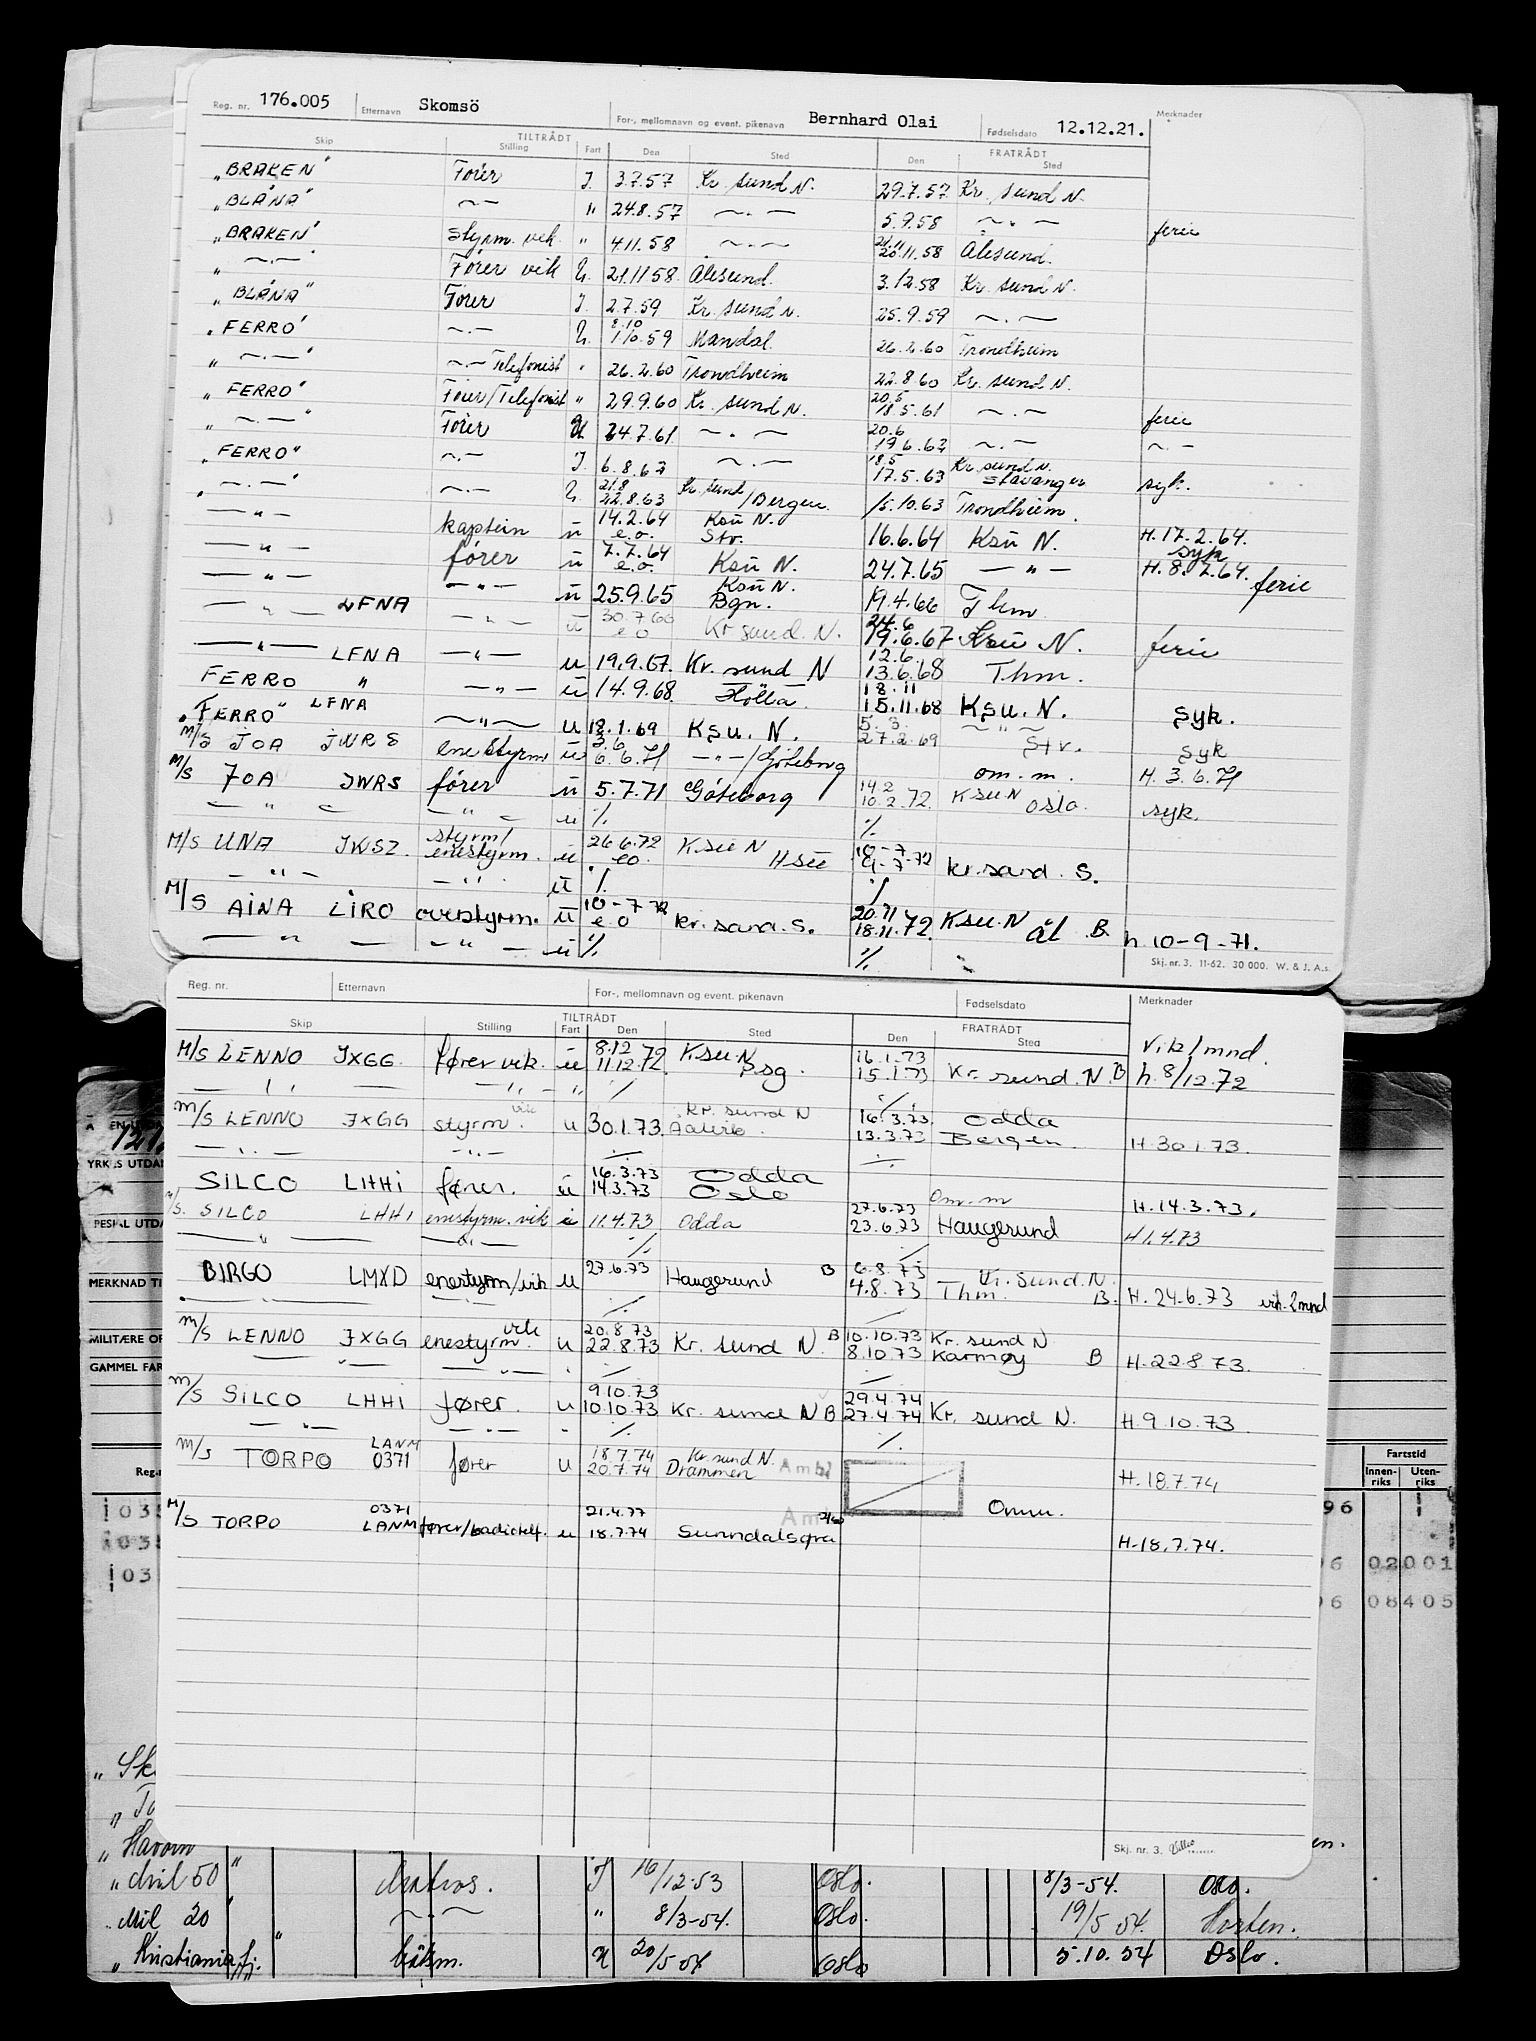 Reg. nr. 176.005 Etternavn Skomsö For-, mellomnavn og event. pikenavn Bernhard Olai Fødselsdato 12.12.21. Merknader
TILTRÅDT FRATRÅDT
Skip Stilling Fart Den Sted Den Sted
„BRAKEN" Fører J. 3.7.57 Kr. sund N. 29.7.57 Kr. sund N.
„BLÅNA" —〃— " 24.8.57 —〃— 5.9.58 —〃— ferie
„BRAKEN" Styrm. vik. " 4.11.58 —〃— 21.11 20.11.58 Ålesund.
„ —〃— " Fører vik U. 21.11 58. Ålesund. 3.12.58 Kr. sund N.
„ BLÅNA" Fører J. 2.7.59 Kr. sund N. 25.9.59 —〃—
„FERRO" —〃— U. 8.10 1.10.59 Mandal 26.2.60 Trondheim
„ —〃— " —〃— Telefonist " 26.2.60 Trondheim 22.8.60 Kr. sund N.
„ FERRO" Fører/Telefonist " 29.9.60 Kr. sund N. 20.5 18.5.61 —〃— ferie
„ —〃— " Fører U 24.7.61 —〃— 20.6 19 6.62 —〃— —〃—
„FERRO" —〃— J. 6.8.62 —〃— 18.5 17.5.63 Kr. sund N. Stavanger syk.
„ —〃— " —〃— U. 21.8 22.8.63 Kr. sund /Bergen 15.10.63 Trondheim.
—〃— kaptein u 14.2.64 e.o. Ksu N. Stv. 16.6.64 Ksu N. H. 17.2.64. syk
—〃— fører u 7.7.64 e.o. Ksu N. 24.7.65 —〃— H. 8.7.64. ferie
—〃— —〃— u 25.9.65 Ksu N. Bgn. 19.4.66 Thm
—〃— LFNA —〃— u 30.7 66 e o Kr sund. N. 24.6 19.6.67 Ksu N. ferie
—〃— LFNA —〃— u 19.9.67. Kr. sund N 12.6 13.6.68 Thm.
FERRO " —〃— u 14.9.68. Holla 18.11 15.11.68 Ksu. N. syk.
„FERRO" LFNA —〃— u 18.1.69 Ksu. N. 5.3. 27.2.69 —〃— Stv. syk
M/S JOA JWRS enestyrm u 3.6 6.6.71 —〃—/Göteborg om. m. H. 3.6.71
M/S JOA JWRS fører u 5.7.71 Göteborg 14 2 10.2.72 Ksu N Oslo. syk.
—〃— —〃— u ./. ./.
M/S UNA JWSZ. styrm/ enestyrm. u 26 6.72 eo. Ksu N Hsu 10-7 9-7-72 kr. sand. S.
—〃— —〃— u ./. ./.
M/S AINA LIRO overstyrm. u 10-7 72 e o kr. sand. S. 20.11 18.11.72. Ksu. N Ål B. h. 10-9-71.
—〃— —〃— u ./. ./.
Skj. nr. 3. 11-62. 30 000. W. & J. A.s.
Reg. nr. Etternavn For-, mellomnavn og event. pikenavn Fødselsdato Merknader
TILTRÅDT FRATRÅDT
Skip Stilling Fart Den Sted Den Sted
M/S LENNO JXGG. fører vik. u 8.12 72 11.12.72. Ksu N Psg. 16.1.73 15.1.73 Kr. sund. N. B Vik 1 mnd. h. 8/12.72
—〃— —〃— ./. ./.
M/S LENNO JXGG styrm. vik u 30.1.73. Kr. sund N 16.3.73. 13.3.73 Odda Bergen. H. 30.1.73.
—〃— —〃— ./. ./.
SILCO LHHI fører. u 16.3.73 14.3.73 Odda Oslo om. m H. 14.3.73.
M/S. SILCO LHHI enestyrm. vik u 11.4.73 Odda 27.6.73 23.6.73 Haugesund H 1.4.73
—〃— —〃— ./. ./.
BIRGO LMXD enestyrm/vik u 27.6.73 Haugesund B 6.8.73 4.8.73 Kr. Sund. N. Thm. B. H. 24.6.73 vik. 2 mnd
—〃— ./. ./.
M/S LENNO JXGG enestyrm. vik u 20.8.73 22.8.73 Kr. sund N. B 10.10.73 8.10.73 Kr. sund N Karmøy B H. 22.8 73.
—〃— —〃— ./. ./.
M/S SILCO LHHI fører. u 9.10.73 10.10.73 Kr. sund N B 29.4.74 27.4.74 Kr. sund N. H. 9.10.73
—〃— —〃— ./. ./.
M/S TORPO LANM 0371 fører u 18.7.74 20.7.74 Kr. sund N. Drammen H. 18.7.74
M/S TORPO 0371 LANM fører/radiotelf. u 21.4.77 18.7.74 Sunndalsøra Omm. H. 18.7.74.
Skj. nr. 3.
YRKES UTDA
MERKNAD TI
MILITÆRE OP
GAMMEL FAR
Fartstid
Reg.n Innen-riks Uten-riks
96
02001
96 08405
„ Havørn "
„ dril 50 " Matros. J 16/12-53 Oslo. 8/3-54. Oslo.
„ Mil 20 —〃— " 8/3-54. Oslo. 19/5 54. Horten.
„ Kristianiafj. " båtsm. U 20/5-54 Oslo 5.10.54 Oslo.